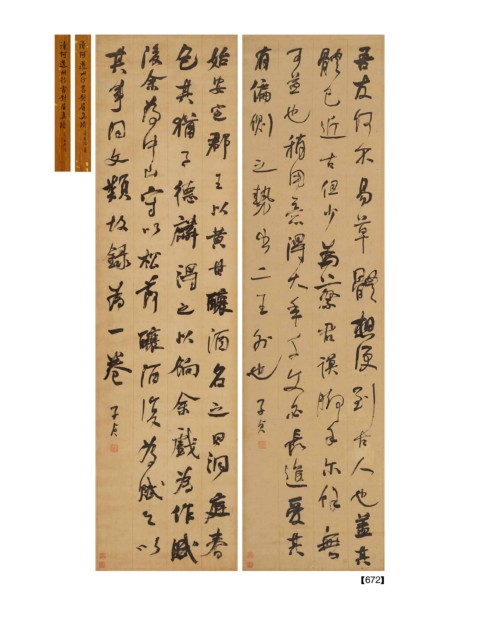 吾友何不易草體想便到古人也蓋其
體已近古但少為蔡君謨腳手尔餘無
可道也稍用意得大年千文必長進愛其
有偏側之勢出二王外也 子貞
始安定郡王以黃甘釀酒名之曰洞庭春
色其猶子德麟得之以餉余戲為作賦
後余為中山守以松節釀酒復為賦之以
其事同文類故錄為一卷 子貞
【672】